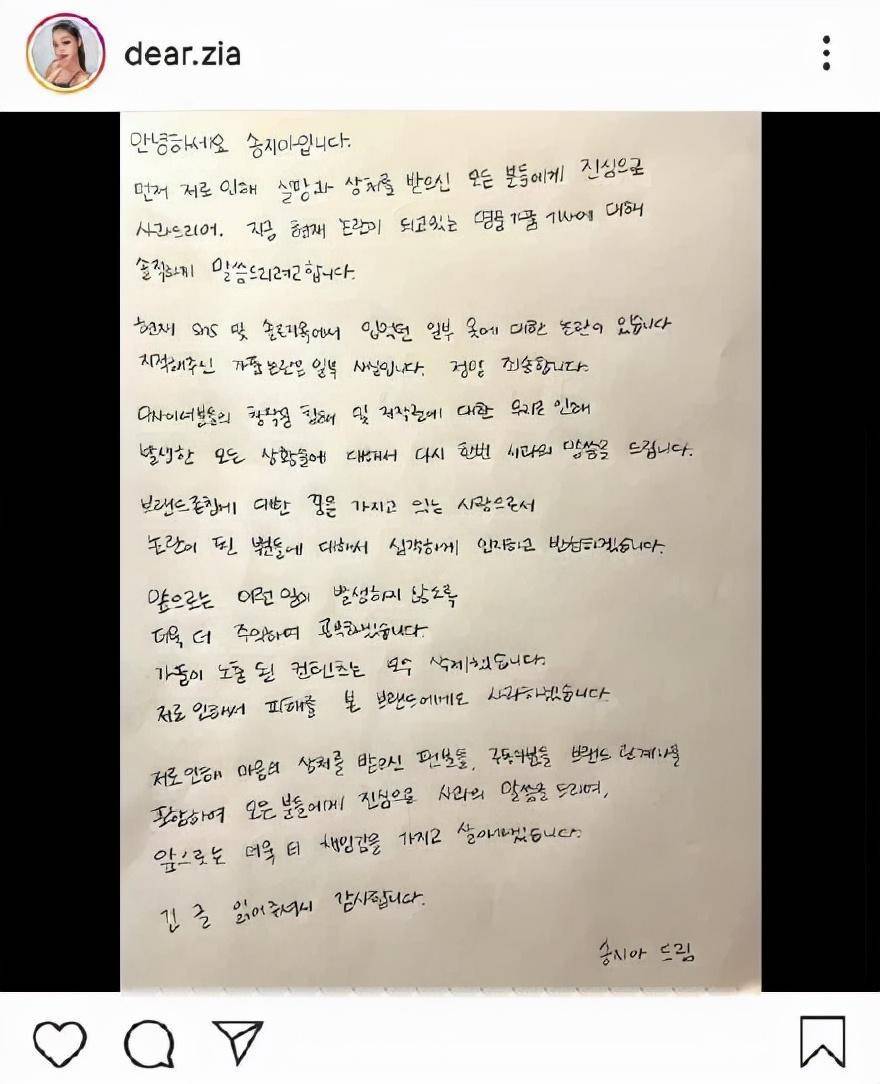 dear.zia
안녕하세요 송지아입니다.
먼저 저로 인해 실망과 상처를 받으신 모든 분들에게 진심으로
사과드리어. 지금 현재 논란이 되고있는 명품가품 기사에 대해
솔직하게 말씀드리려고합니다.
현재 sns 및 솔로지옥에서 입었던 일부 옷에 대한 논란이 있습니다
지적해주신 가품논란은 일부 사실입니다. 정말 죄송합니다.
디자이너분들의 창작물 침해 및 저작권에 대한 무지로 인해
발생한 모든 상황들에 대해서 다시 한번 사과의 말씀을 드립니다.
브랜드론칭에 대한 꿈을 가지고 있는 사람으로서
논란이 된 부분들에 대해서 심각하게 인지하고 반성하겠습니다.
앞으로는 이런 일이 발생하지 않도록
더욱 더 주의하며 공부하겠습니다.
가품이 노출 된 컨텐츠는 모두 삭제했습니다.
저로 인해서 피해를 본 브랜드에게도 사과하겠습니다.
저로인해 마음의 상처를 받으신 팬분들, 구독자분들 브랜드 관계자를
포함하여 모든 분들에게 진심으로 사과의 말씀을 드리며,
앞으로는 더욱 더 책임감을 가지고 살아가겠습니다.
긴 글 읽어주셔서 감사합니다.
송지아 드림